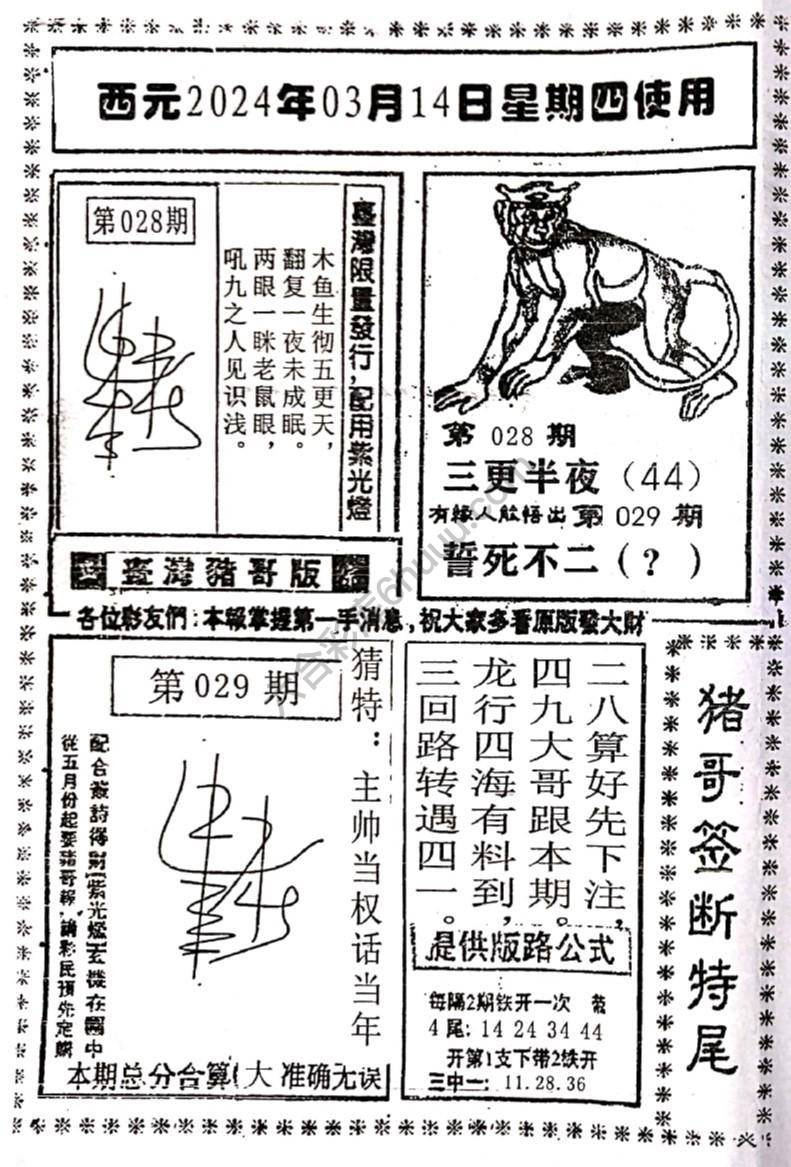 西元2024年03月14日星期四使用
第028期
臺灣限量發行,配用紫光燈
木鱼生彻五更天,
翻复一夜未成眠。
两眼一眯老鼠眼,
吼九之人见识浅。
臺灣豬哥版
第 028 期
三更半夜（44）
有緣人能悟出第 029 期
誓死不二(?)
各位彩友們:本報掌握第一手消息,祝大家多看原版發大財
第029期
猜特:主帅当权话当年
配合簽詩得財紫光燈玄機在圖中
從五月份起要豬哥報,請彩民預先定購
本期总分合算(大 准确无误
二八算好先下注,
四九大哥跟本期。
龙行四海有料到,
三回路转遇四一。
提供版路公式
每隔2期铁开一次
4尾:14 24 34 44
开第1支下带2铁开
三中一:11.28.36
猪哥签断特尾
六合彩库6huuu.com